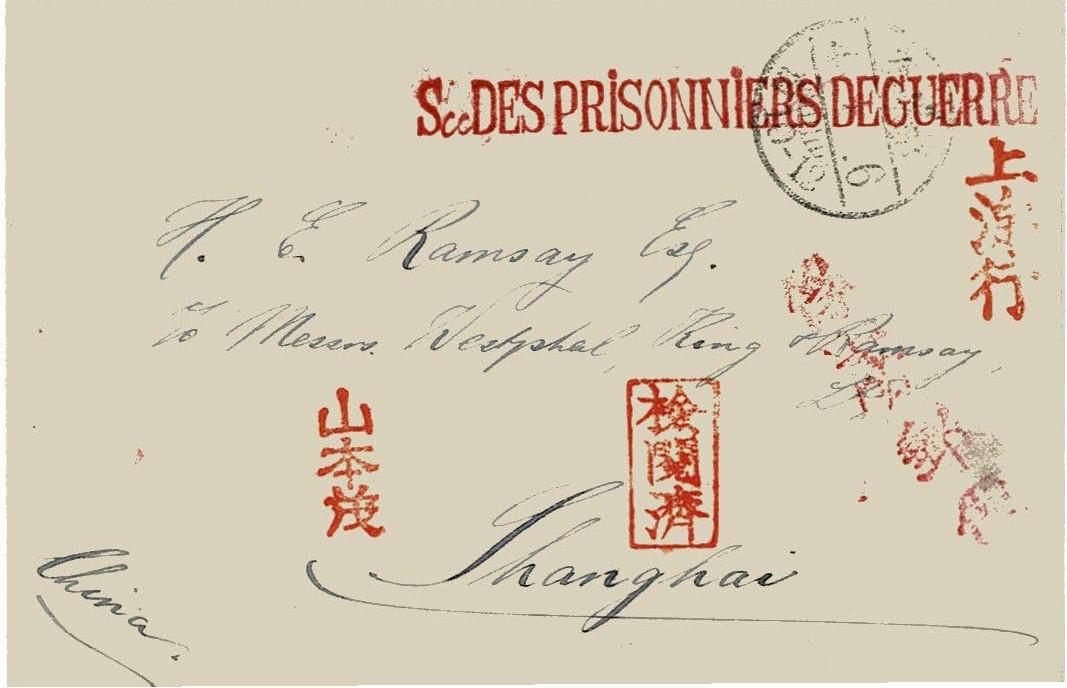 Scc DES PRiSONNiERS DE GUERRE
上海行
H. E. Ramsay Esq.
c/o Messrs. Westphal, King & Ramsay,
Ld.
山本茂
検閲濟
Shanghai
China.